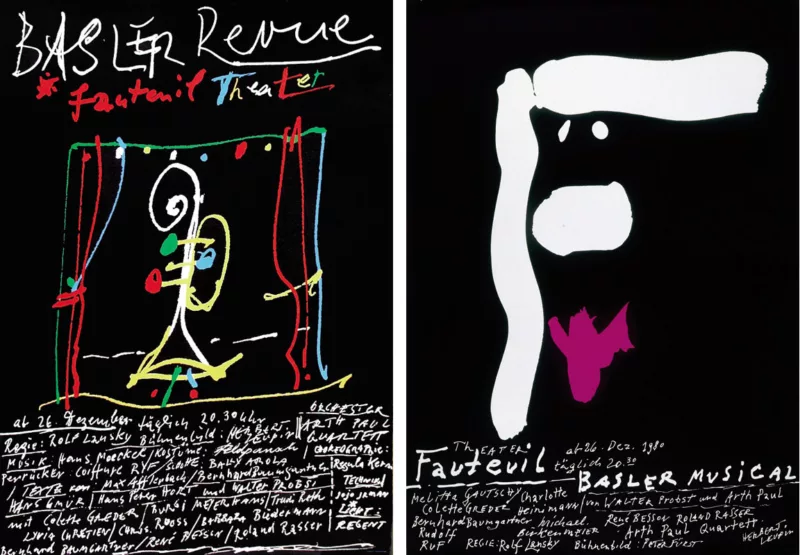 BASLER Revue
* Fauteuil Theater
ab 26. Dezember täglich 20.30 Uhr
Regie: Rolf Lansky Bühnenbild: HERBERT LEUPIN
MUSIK: Hans Moeckel / KOSTÜME:
Perrücken: Coiffure RYF / SCHUHE: BALLY AROLA
TEXTE von Max Afflerbach / Bernhard Baumgartner
HANS GMÜR / Hans Peter HORT und WALTER PROBST
mit Colette GREDER / BURGI METERHANS / Trudi Roth
LYDIA CHRETIEN / CHRIS. ROOSS / BARBARA Büdermann
BERNHARD BAUMGARTNER / RENÉ BESSON / Roland Rasser
ORCHESTER
ARTH PAUL
QUARTETT
CHOREOGRAPHIE:
Regula Kern
TECHNIK
JoJo Jaman
LICHT:
REGENT
THEATER
Fauteuil
ab 26. Dez. 1980
täglich 20.30
BASLER MUSICAL
Melitta GAUTSCHY Charlotte
Colette GREDER Heinimann / von WALTER Probst und Arth Paul
Bernhard Baumgartner Michael RENÉ BESSON ROLAND RASSER
Rudolf Birkenmeier Arth Paul Quartett
RUF REGIE: Rolf Lansky Bühnenbild:
HERBERT
LEUPIN